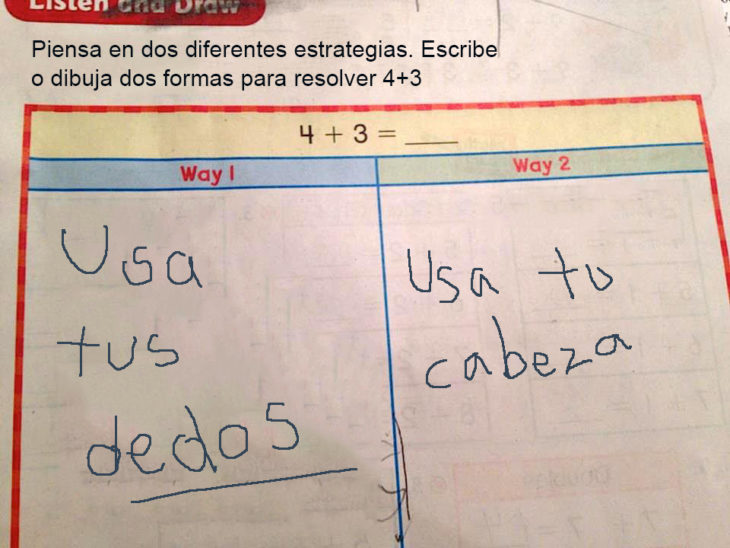 Listen and Draw
Piensa en dos diferentes estrategias. Escribe
o dibuja dos formas para resolver 4+3
4 + 3 = ____
Way 1
Way 2
Usa
tus
dedos
Usa tu
cabeza